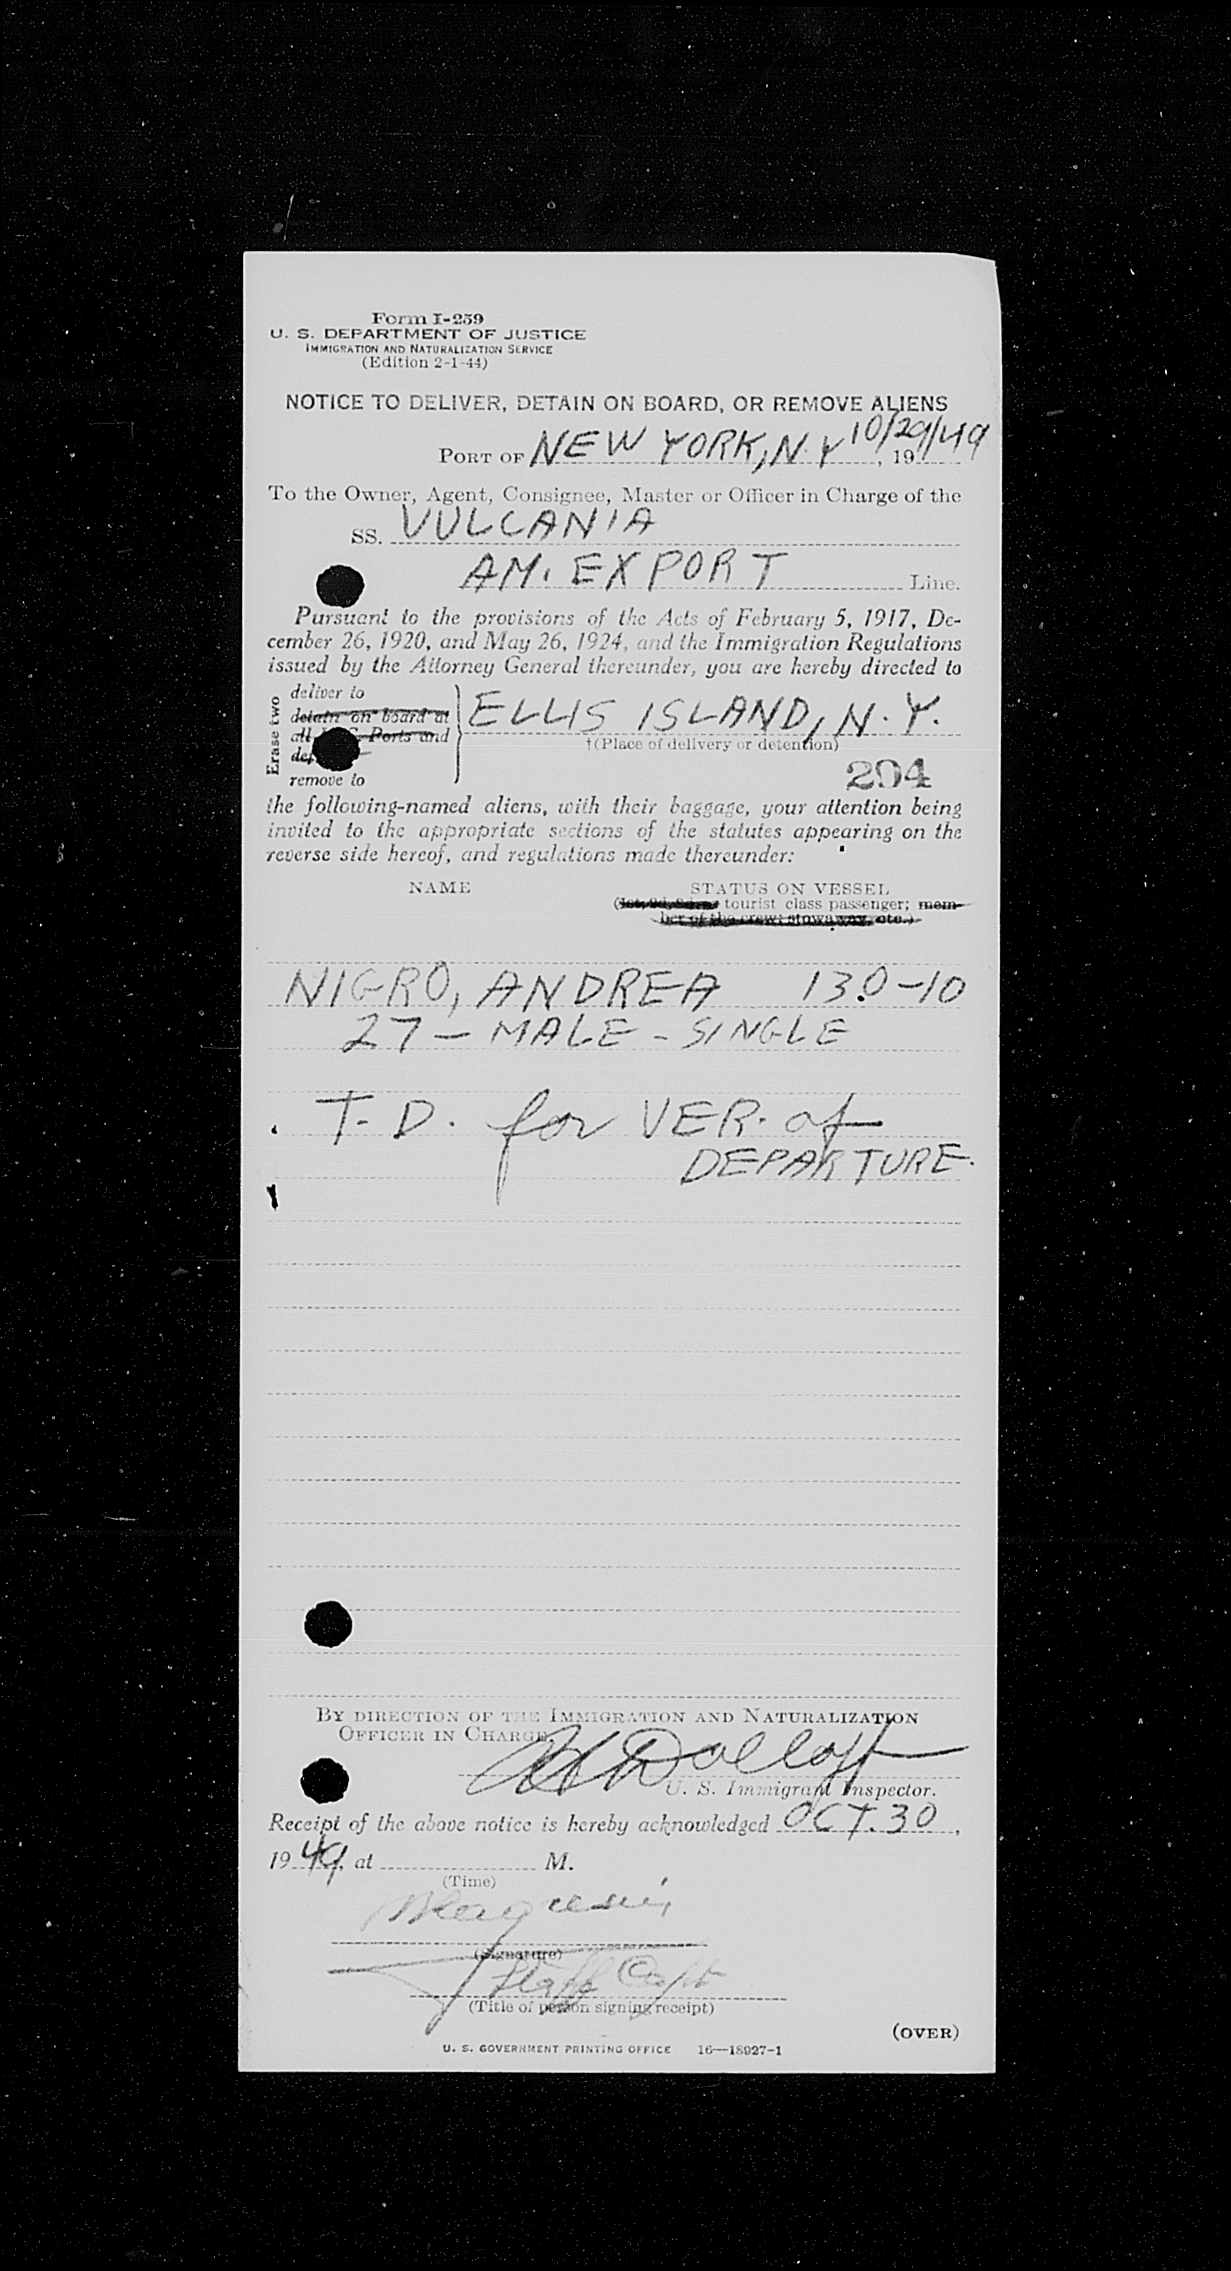 Form I-259
U. S. DEPARTMENT OF JUSTICE
IMMIGRATION AND NATURALIZATION SERVICE
(Edition 2-1-44)
NOTICE TO DELIVER, DETAIN ON BOARD, OR REMOVE ALIENS
PORT OF NEW YORK, N.Y 10/29/49, 19
To the Owner, Agent, Consignee, Master or Officer in Charge of the
SS. VULCANIA
AM. EXPORT Line.
Pursuant to the provisions of the Acts of February 5, 1917, De-
cember 26, 1920, and May 26, 1924, and the Immigration Regulations
issued by the Attorney General thereunder, you are hereby directed to
Erase two
deliver to
detain on board at
all Ports and
remove to
ELLIS ISLAND, N.Y.
†(Place of delivery or detention)
204
the following-named aliens, with their baggage, your attention being
invited to the appropriate sections of the statutes appearing on the
reverse side hereof, and regulations made thereunder:
NAME STATUS ON VESSEL
(1st, 2d, 3d, or tourist class passenger; mem-
ber of the crew; stowaway, etc.)
NIGRO, ANDREA 130-10
27 - MALE - SINGLE
T.D. for VER. of
DEPARTURE.
BY DIRECTION OF THE IMMIGRATION AND NATURALIZATION
OFFICER IN CHARGE
U. S. Immigrant Inspector.
Receipt of the above notice is hereby acknowledged OCT. 30,
1949, at M.
(Time)
(Signature)
Staff Capt
(Title of person signing receipt)
(OVER)
U. S. GOVERNMENT PRINTING OFFICE 16—18927-1